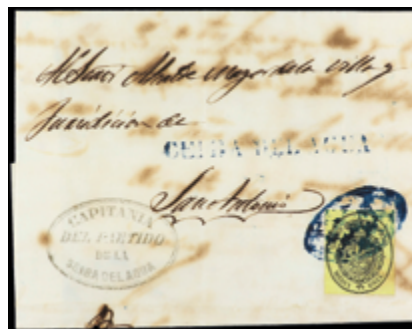 Al Señor Alcalde mayor de la villa y
Jurisdicion de
CEIBA DEL AGUA
San Antonio
CAPITANIA
DEL PARTIDO
DE LA
SEIBA DEL AGUA